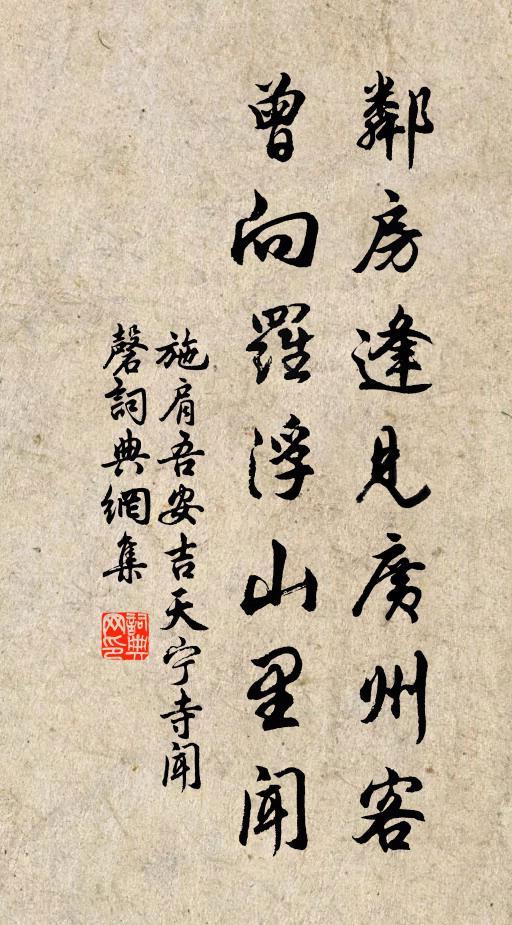 鄰房逢見廣州客
曾向羅浮山里聞
施肩吾安吉天宁寺聞
磬詞典網集
詞典
网印